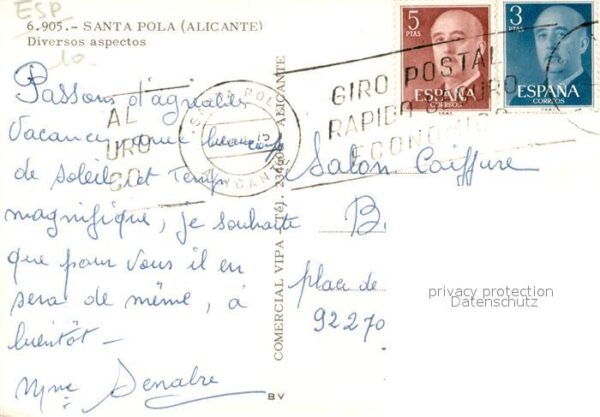 ESP
6.905.- SANTA POLA (ALICANTE)
Diversos aspectos
10.
Passons d'agréables
Vacances avec beaucoup
de soleil, et Temps
magnifique, je souhaite
que pour vous il en
sera de même, à
bientôt -
Mme Senabre
COMERCIAL VIPA - (Tél. ALICANTE
BV
AL
URO
CO
SANTA POLA
ALICANTE
GIRO POSTAL
RAPIDO SEGURO
ECONOMICO
5
PTAS
ESPAÑA
CORREOS
3
PTAS
ESPAÑA
CORREOS
Salon Coiffure
B.
place de
92270
privacy protection
Datenschutz